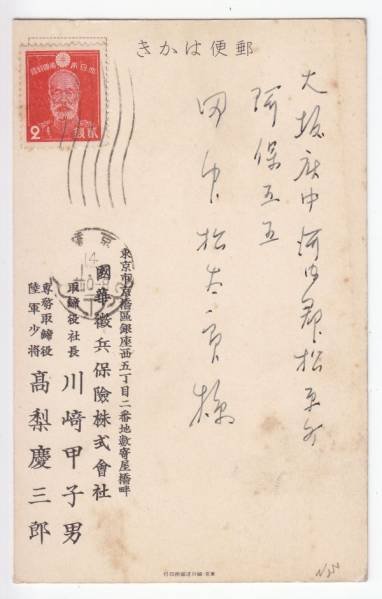 郵便はかき
大日本帝國郵便
2
貳銭
東京
14
大阪府中河内郡松原村
阿保五五
田中松太郎様
東京市京橋區銀座西五丁目二番地數寄屋橋畔
國華徴兵保險株式會社
取締役社長 川崎甲子男
專務取締役
陸軍少將 高梨慶三郎